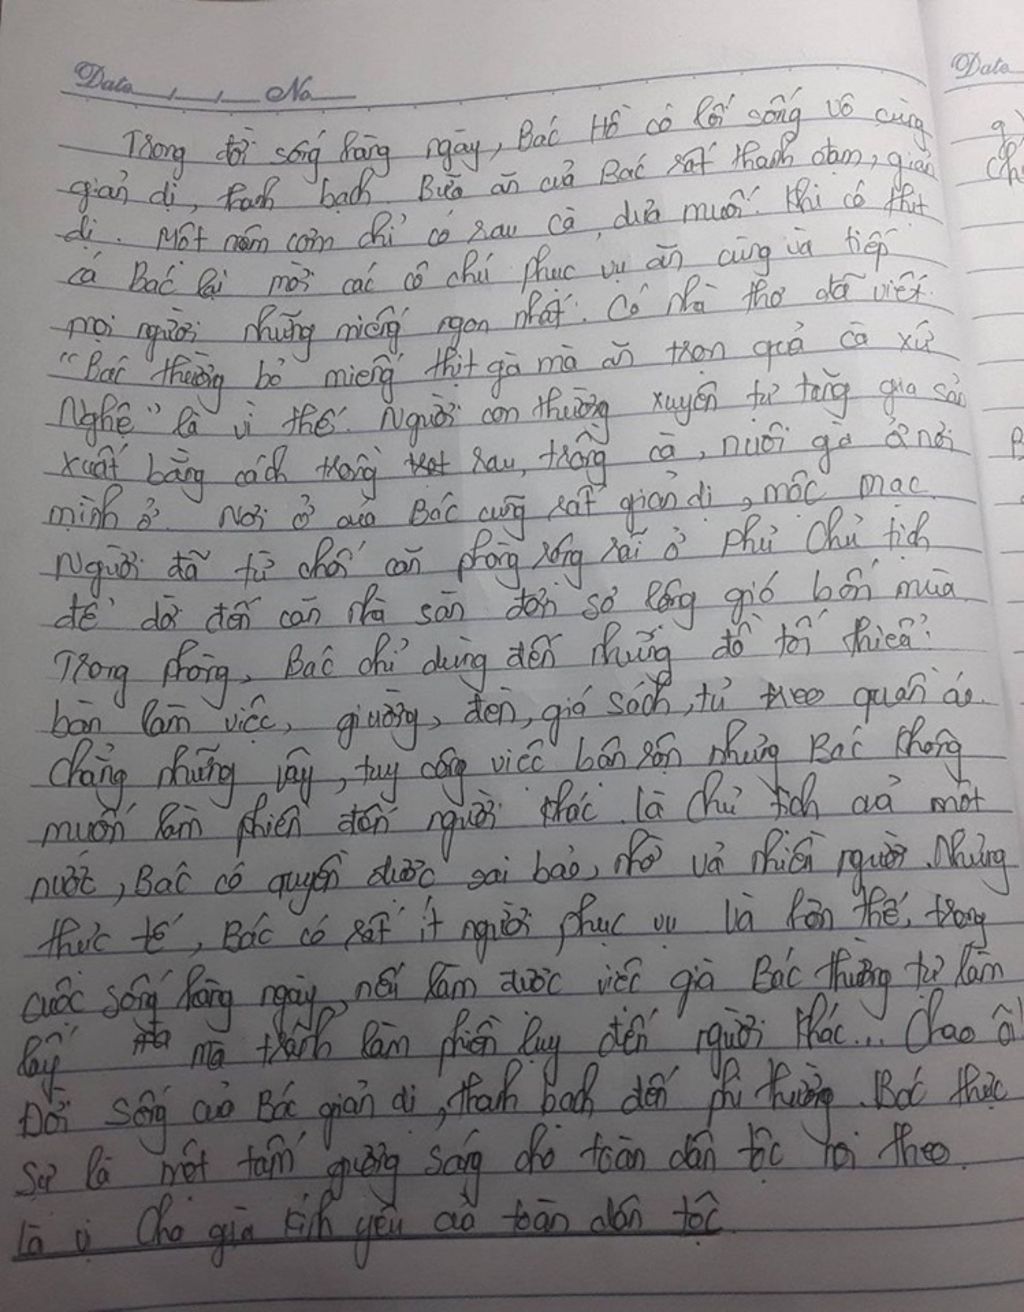 Date No
Date
Trong đời sống hàng ngày, Bác Hồ có lối sống vô cùng
giản dị, thanh bạch. Bữa ăn của Bác rất thanh đạm, giản
dị. Một nắm cơm chỉ có rau cà, dưa muối. Khi có thịt
cá Bác lại mời các cô chú phục vụ ăn cùng và tiếp
mọi người những miếng ngon nhất. Có nhà thơ đã viết:
"Bác thường bỏ miếng thịt gà mà ăn trọn quả cà xứ
Nghệ" là vì thế. Người còn thường xuyên tự tăng gia sản
xuất bằng cách trồng rau, trồng cà, nuôi gà ở nơi
mình ở. Nơi ở của Bác cũng rất giản dị, mộc mạc.
Người đã từ chối căn phòng rộng rãi ở Phủ Chủ tịch
để dời đến căn nhà sàn đơn sơ lộng gió bốn mùa.
Trong phòng, Bác chỉ dùng đến những đồ tối thiểu:
bàn làm việc, giường, đèn, giá sách, tủ treo quần áo.
Chẳng những vậy, tuy công việc bận rộn nhưng Bác không
muốn làm phiền đến người khác. Là chủ tịch của một
nước, Bác có quyền được sai bảo, nhờ vả nhiều người. Nhưng
thực tế, Bác có rất ít người phục vụ. Là hơn thế, trong
cuộc sống hàng ngày, nếu làm được việc gì Bác thường tự làm
lấy mà tránh làm phiền lụy đến người khác... Chao ôi!
Đời sống của Bác giản dị, thanh bạch đến phi thường. Bác thực
sự là một tấm gương sáng cho toàn dân tộc noi theo.
là vị Cha già kính yêu của toàn dân tộc.